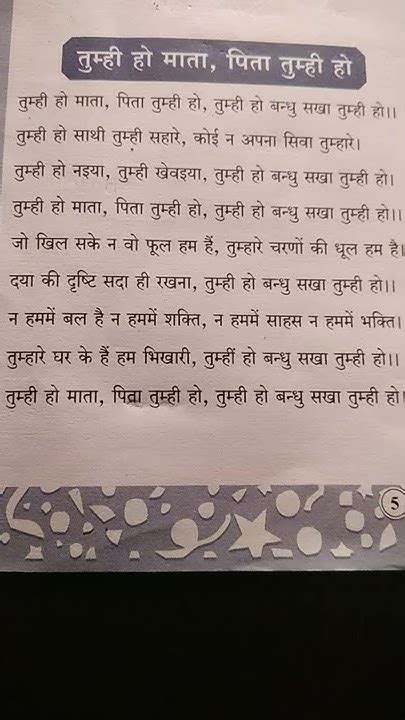 तुम्ही हो माता, पिता तुम्ही हो
तुम्ही हो माता, पिता तुम्ही हो, तुम्ही हो बन्धु सखा तुम्ही हो।।
तुम्ही हो साथी तुम्ही सहारे, कोई न अपना सिवा तुम्हारे।
तुम्ही हो नइया, तुम्ही खेवइया, तुम्ही हो बन्धु सखा तुम्ही हो।
तुम्ही हो माता, पिता तुम्ही हो, तुम्ही हो बन्धु सखा तुम्ही हो।।
जो खिल सके न वो फूल हम हैं, तुम्हारे चरणों की धूल हम है।
दया की दृष्टि सदा ही रखना, तुम्ही हो बन्धु सखा तुम्ही हो।।
न हममें बल है न हममें शक्ति, न हममें साहस न हममें भक्ति।
तुम्हारे घर के हैं हम भिखारी, तुम्हीं हो बन्धु सखा तुम्ही हो।।
तुम्ही हो माता, पिता तुम्ही हो, तुम्ही हो बन्धु सखा तुम्ही हो।
5